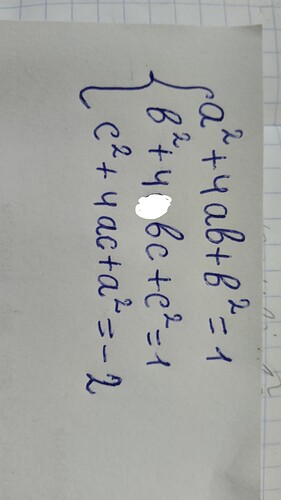 a² + 4ab + b² = 1
b² + 4 bc + c² = 1
c² + 4ac + a² = -2